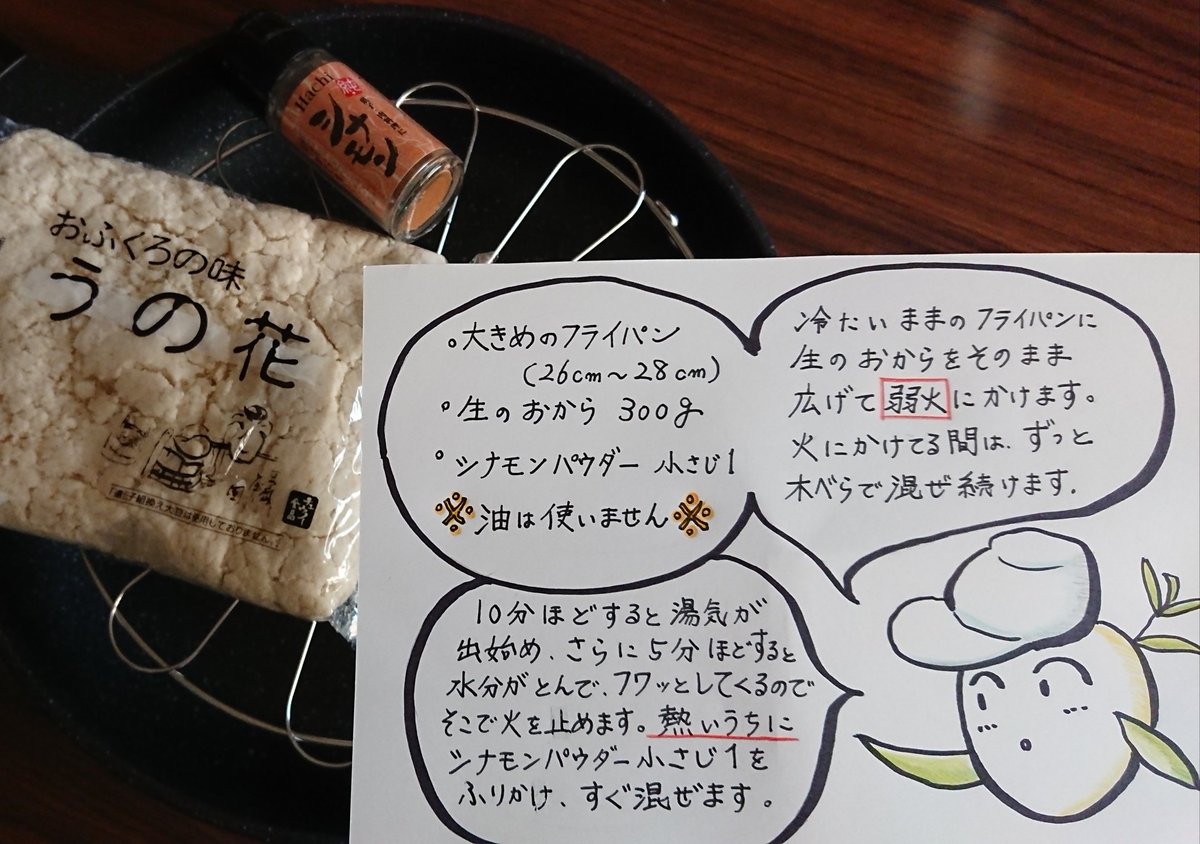 Hachi
シナモン
おふくろの味
うの花
「遺伝子組換え大豆は使用しておりません。」
。大きめのフライパン
(26cm～28cm)
。生のおから 300g
。シナモンパウダー 小さじ1
※油は使いません※
冷たいままのフライパンに
生のおからをそのまま
広げて弱火にかけます。
火にかけてる間は、ずっと
木べらで混ぜ続けます.
10分ほどすると湯気が
出始め、さらに5分ほどすると
水分がとんで、フワッとしてくるので
そこで火を止めます。熱いうちに
シナモンパウダー小さじ1を
ふりかけ、すぐ混ぜます。